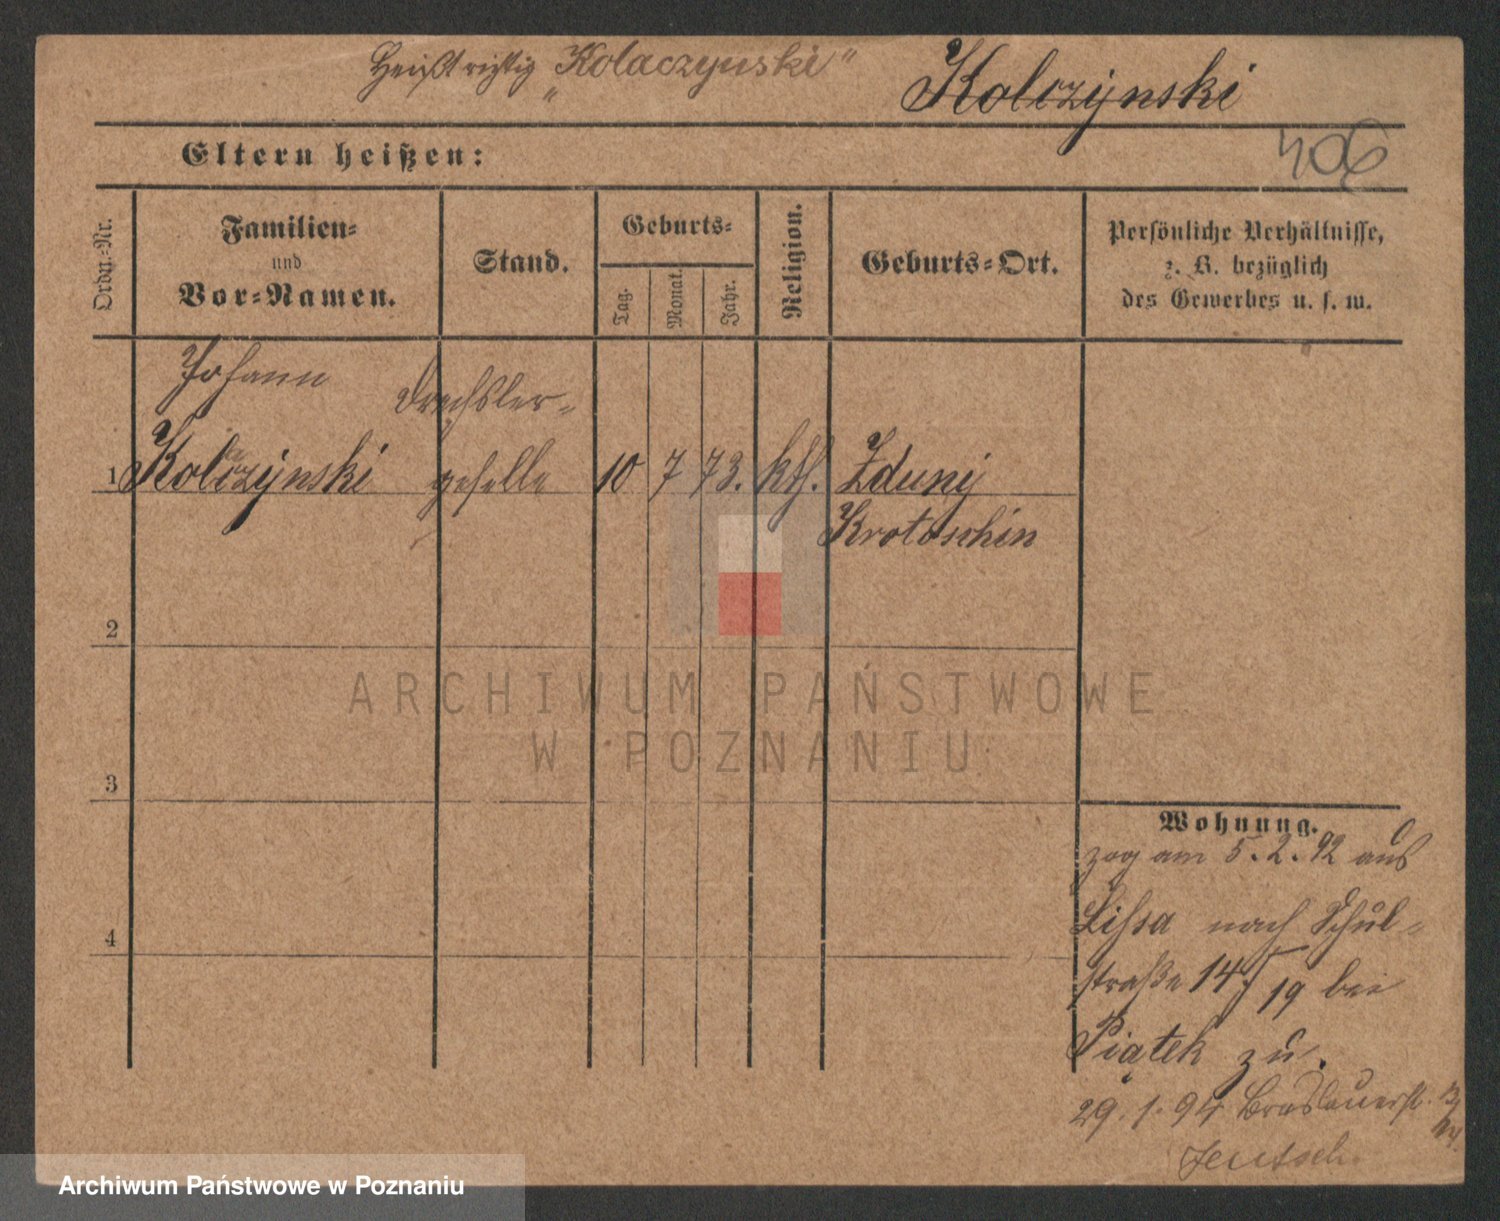 Heißt richtig „Kolaczynski“
Kolczynski
406
Eltern heißen:
Ordn.-Nr.
Familien-
und
Vor-Namen.
Stand.
Geburts-
Tag.
Monat.
Jahr.
Religion.
Geburts-Ort.
Persönliche Verhältnisse,
z. B. bezüglich
des Gewerbes u. s. w.
Johann
Drechsler-
1 Kolaczynski geselle 10 7 73. kth. Zduny
Krotoschin
2
3
4
Wohnung.
zog am 5.2.92 aus
Lissa nach Schul-
straße 14/19 bei
Piątek zu.
29.1.94 Breslauerst.
Jentsch.
ARCHIWUM PAŃSTWOWE
W POZNANIU
Archiwum Państwowe w Poznaniu